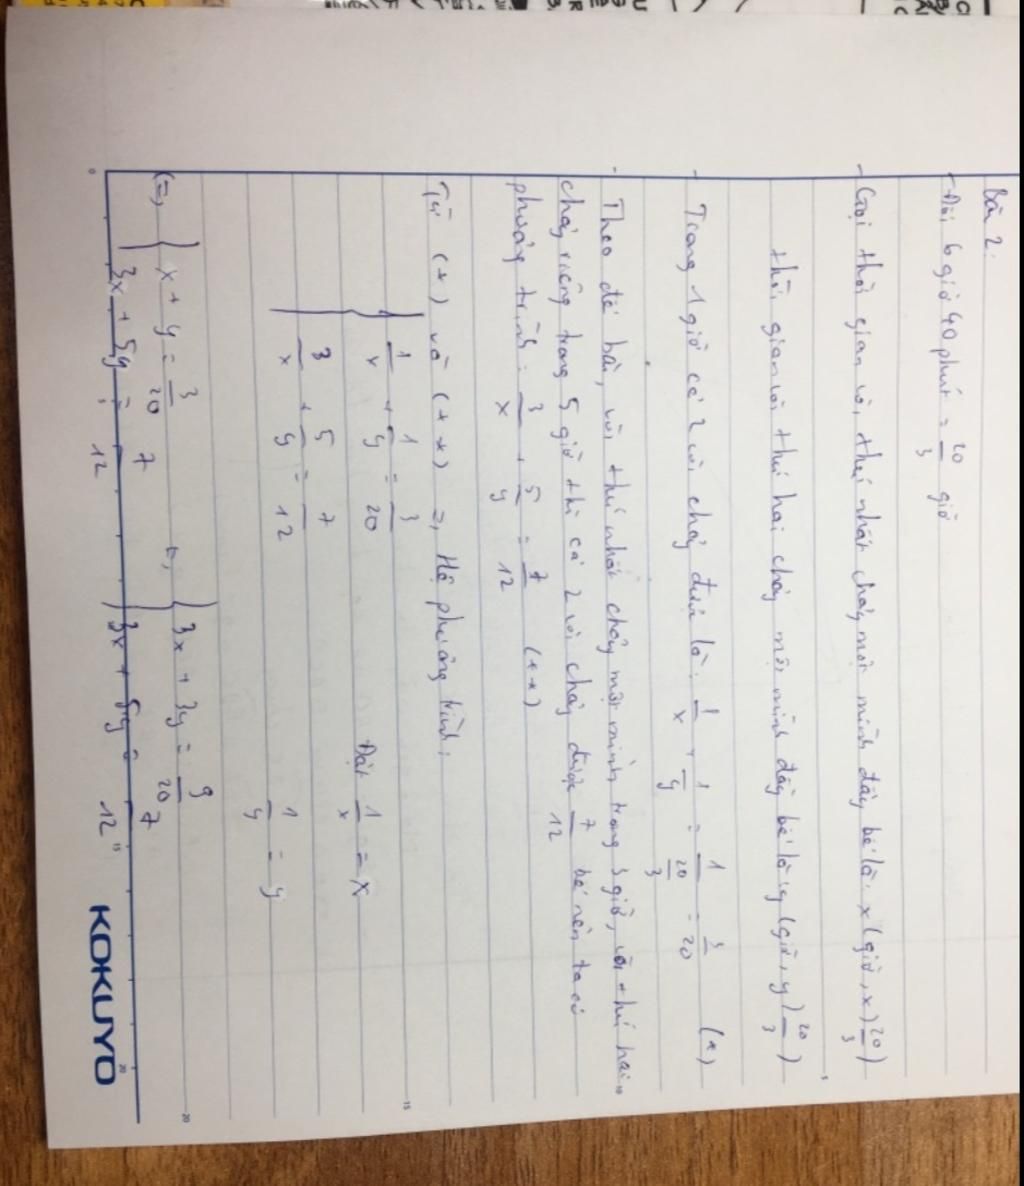 Bài 2:
- Đổi 6 giờ 40 phút = 20/3 giờ
- Gọi thời gian vòi thứ nhất chảy một mình đầy bể là: x (giờ, x > 20/3)
thời gian vòi thứ hai chảy một mình đầy bể là y (giờ, y > 20/3)
- Trong 1 giờ cả 2 vòi chảy được là: 1/x + 1/y = 1/(20/3) = 3/20 (*)
- Theo đề bài, vòi thứ nhất chảy một mình trong 3 giờ, vòi thứ hai
chảy riêng trong 5 giờ thì cả 2 vòi chảy được 7/12 bể nên ta có
phương trình: 3/x + 5/y = 7/12 (**)
Từ (*) và (**) => Hệ phương trình:
{ 1/x + 1/y = 3/20 Đặt 1/x = x
{ 3/x + 5/y = 7/12 1/y = y
(=) { x + y = 3/20 { 3x + 3y = 9/20
{ 3x + 5y = 7/12 { 3x + 5y = 7/12
KOKUYO